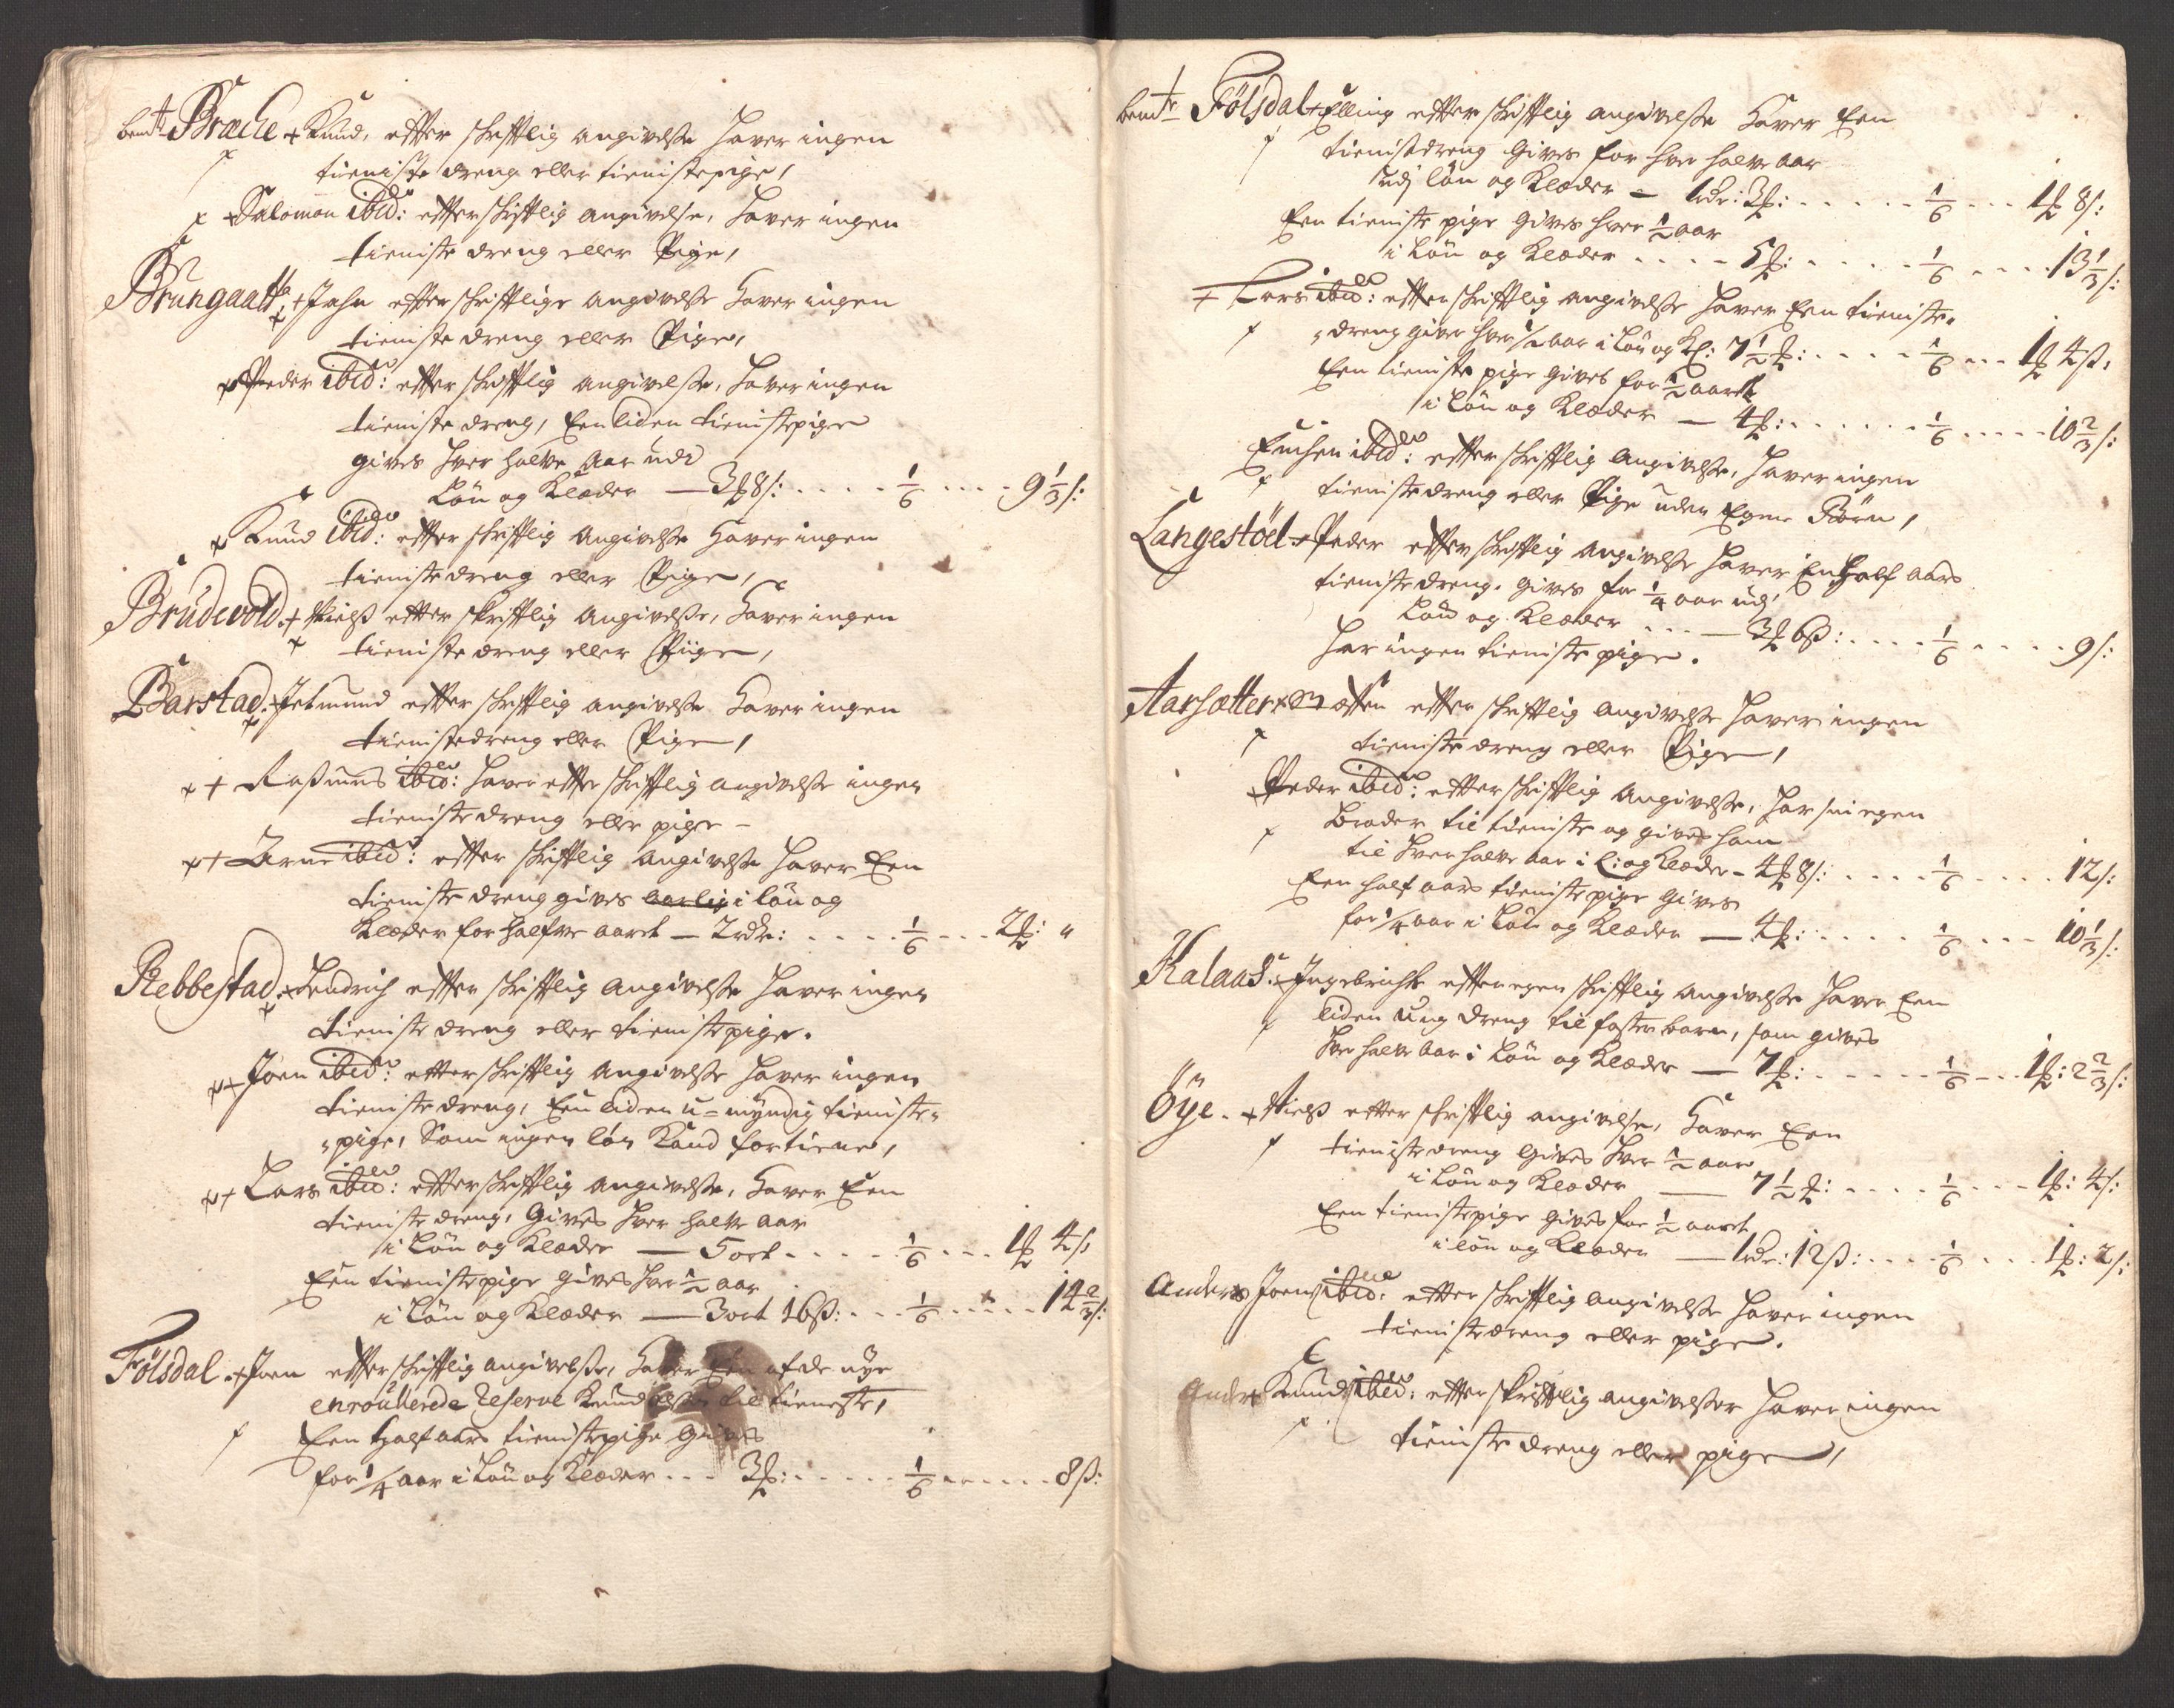 bemte Bræche + Knud, efter schrifftlig angivelsse haver ingen
tieniste dreng eller tienistepige,
+ Salomon ibid: efter schrifftlig angivelse, haver ingen
tieniste dreng eller Pige,
Brungaatt + Jahn efter schrifftlige angivelsse haver ingen
tieniste dreng eller Pige,
+ Peder ibid: efter schrifftlig angivelsse, haver ingen
tieniste dreng, Een liden tienistepige
gives hver halve Aar udi
Løn og Klæder — 3 8 s: . . . . 1/6 . . . . 9 1/3 s:
+ Knud ibid: efter schrifftlig angivelsse haver ingen
tienistedreng eller Pige,
Brudevold + Nielss efter schrifftlig angivelsse, haver ingen
tieniste dreng eller Piige,
Barstad. + Jetmund efter schrifftlig angivelsse haver ingen
tienistedreng eller Pige,
+ + Rassmus ibid: haver efter schrifftlig angivelsse ingen
tienistedreng eller pige –
+ + Arne ibid: efter schrifftlig angivelsse haver Een
tieniste dreng gives aarlig i løn og
Klæder for halfve aaret — 2 rdr: . . . . 1/6 . . . 2 : "
Rebbestad. + Hendrich efter schrifftlig angivelsse haver ingen
tieniste dreng eller tienistepige.
+ + Joen ibid: efter schrifftlig angivelsse haver ingen
tieniste dreng, Een liden u=myndig tieniste„
„pige, Som ingen løn Kand fortiene,
+ + Lars ibid: efter schrifftlig angivelsse, haver Een
tieniste dreng, Gives hver halve aar
i Løn og Klæder — 5 ort . . . . . 1/6 . . . 1 4 s
Een tienistepige gives hver 1/2 aar
i Løn og Klæder — 3 ort 16 ss: . . . 1/6 . . . . 14 2/3 s:
Følsdal. + Joen efter schrifftlig angivelsse, haver Een af de nye
enroullerede Reserve til tieneste,
Een halfaars tienistepige Gives
for 1/4 aar i Løn og Klæder . . . 3 : . . . . . 1/6 . . . . . 8 ss:
bemte Følsdal + Elling efter schrifftlig angivelsse haver Een
tienistedreng Gives for hver halve aar
udj løn og Klæder — 1 rdr: 3 : . . . . . 1/6 . . . 1 8 s:
Een tieniste pige Gives hver 1/2 aar
i Løn og Klæder . . . . 5 : . . . . . 1/6 . . . . 13 1/3 s:
+ Lars ibid: efter schrifftlig angivelsse haver Een tieniste„
„dreng giver hver 1/2 aar i Løn og Kl: 7 1/2 : . . . . . 1/6 . . . 1 4 ss,
Een tieniste pige gives for 1/2 aaret
i Løn og Klæder — 4 : . . . . . . 1/6 . . . . . 10 2/3 s:
ibid: efter schrifftlig angivelsse, haver ingen
tienistedreng eller Pige uden Egne Børn,
Langestöel + Peder efter schrifftlig angivelsse haver En half aars
tieniste dreng. gives for 1/4 aar udj
Løn og Klæder . . . — 3 6 ss: . . . . 1/6 . . . . . 9 s:
har ingen tieniste pige.
Aarsætter + efter schrifftlig angivelsse haver ingen
tieniste dreng eller Pige,
+ Peder ibid: efter schrifftlig angivelsse, har sin egen
Broder til tieniste og gives ham
til hver halve aar i L: og Klæder — 4 8 s: . . . . 1/6 . . . . . 12 s:
Een half aars tieniste pige gives
for 1/4 aar i Løn og Klæder — 4 : . . . . . 1/6 . . . 10 1/3 s:
Kalaas: + Ingebricht efter egen schrifftlig angivelsse haver Een
liden ung dreng til foster barn, som gives
hver halve aar i Løn og Klæder — 7 : . . . . . . 1/6 . . . 1 : 2 2/3 s:
Öÿe. + Nielss efter schrifftlig angivelse, haver Een
tieniste dreng Gives hver 1/2 aar
i Løn og Klæder — 7 1/2 : . . . . 1/6 . . . 1 : 4 s:
Een tienistepige gives for 1/2 aaret
i løn og Klæder — 1 rdr: 12 ss: . . . . 1/6 . . . . 1 : 2 s:
Anders Joens ibid: efter schrifftlig angivelsse haver ingen
tienistedreng eller pige.
Anders Knuds ibid: efter schrifftlig angivelsse haver ingen
tieniste dreng eller pige,